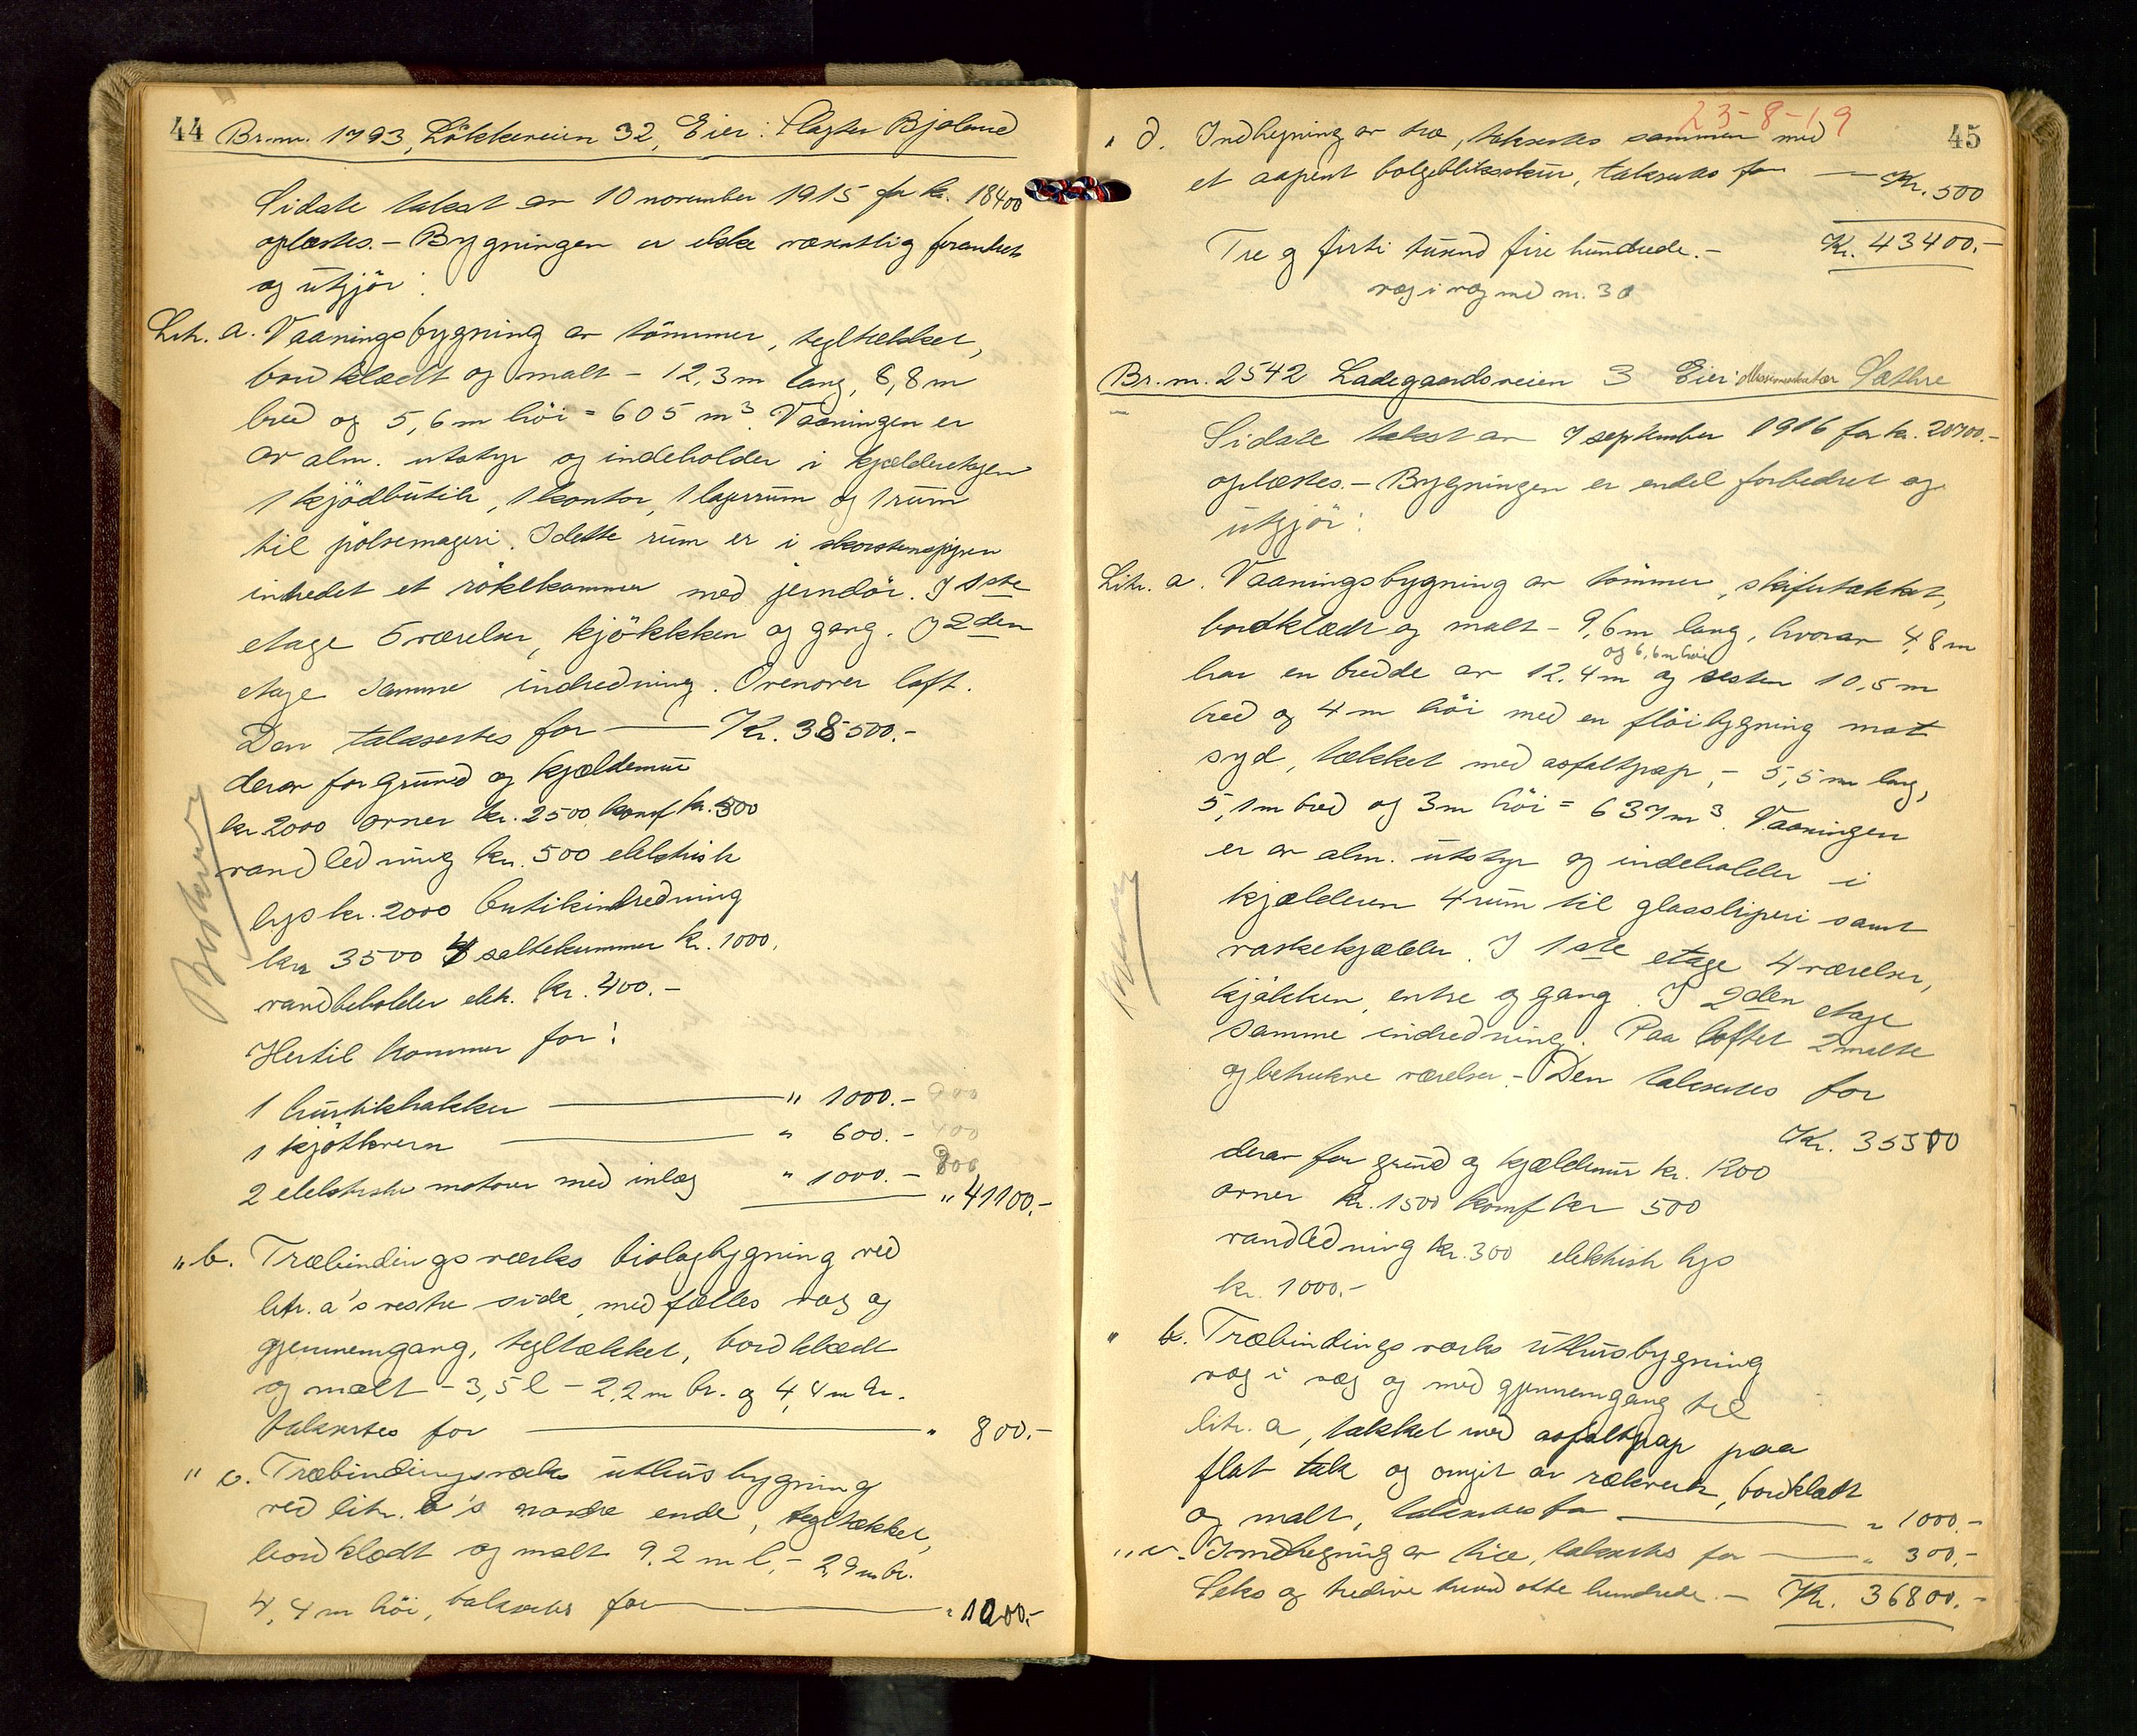 44 Br.nr. 1793, Lökkeveien 32, Eier: Slagter Bjelland
Sidste takst av 10 november 1915 for kr. 18400
oplæstes. - Bygningen er ikke væsentlig forandret
og utgjör:
Litr. a. Vaaningsbygning av tömmer, tegltækket,
bordklædt og malt - 12,3 m lang, 8,8 m
bred og 5,6 m höi = 605 m³. Vaaningen er
av alm. utstyr og indeholder i kjælderetagen
1 kjödbutik, 1 kontor, 1 lagerrum og 1 rum
til pölsemageri. I dette rum er i skorstenspipen
indredet et rökekammer med jerndör. I 1ste
etage 5 værelser, kjökken og gang. I 2den
etage samme indredning. Ovenover loft.
Den takseres for — Kr. 38500.-
derav for grund og kjældermur
kr. 2000 ovner kr. 2500 komf kr. 500
vandledning kr. 500 elektrisk
lys kr. 2000 butikindredning
kr. 3500 4 saltekummer kr. 1000,
vandbeholder elek. kr. 400.-
Hertil kommer for:
1 hurtikhakker — " 1000.- 900
1 kjötkvern — " 600.- 400
2 elektriske motorer med inlæg " 1000.- 800 " 41100.-
" b. Træbindingsverks bislagbygning ved
litr. a's vestre side, med fælles væg og
gjennemgang, tegltækket, bordklædt
og malt - 3,5 l - 2,2 m br. og 4,4 m h.
takseres for — " 800.-
" c. Træbindingsverks uthusbygning
ved litr. b's nordre ende, tegltækket,
bordklædt og malt 9,2 m l, - 2,9 m br.
4,4 m höi, takseres for — " 1000.-
23-8-19
45
" d. Indhegning av træ, takseres sammen med
et aapent bølgeblikskur, takseres for — Kr. 500
Tre og firti tusend fire hundrede. - Kr. 43400.-
væg i væg med nr. 30
Br. nr. 2542 Ladegaardsveien 3 Eier: Missionssekretær Sæthre
Sidste takst av 7 september 1916 for kr. 20700.-
oplæstes. - Bygningen er endel forbedret og
utgjör:
Litr. a. Vaaningsbygning av tömmer, skifertækket,
bordklædt og malt - 9,6 m lang, hvorav 4,8 m
og 6,6 m höi
har en bredde av 12,4 m og resten 10,5 m
bred og 4 m höi med en flöibygning mot
syd, tækket med asfaltpap, - 5,5 m lang,
5,1 m bred og 3 m höi = 637 m³. Vaaningen
er av alm. utstyr og indeholder i
kjælderen 4 rum til glassliperi samt
vaskekjælder. I 1ste etage 4 værelser,
kjökken, entre og gang. I 2den etage
samme indredning. Paa loftet 2 malte
og betrukne værelser. - Den takseres for
Kr. 35500
derav for grund og kjældermur kr. 1200
ovner kr. 1500 komf kr 500
vandledning kr. 300 elektrisk lys
kr. 1000.-
" b. Træbindingsverks uthusbygning
væg i væg og med gjennemgang til
litr. a, tækket med asfaltpap paa
flat tak og omgit av rækverk, bordklædt
og malt, takseres for — " 1000.-
" c. Indhegning av træ, takseres for — " 300.-
Seks og tredive tusend otte hundrede. - Kr. 36800.-